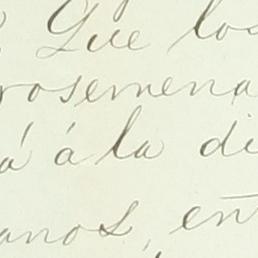 Que los
rosemena
á á la di
anos, en